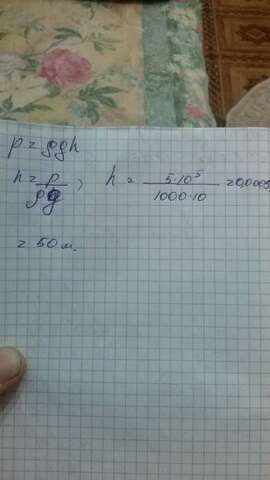 p = ρgh
h = p/ρg ; h = 5·10⁵/1000·10 =
= 50 м.